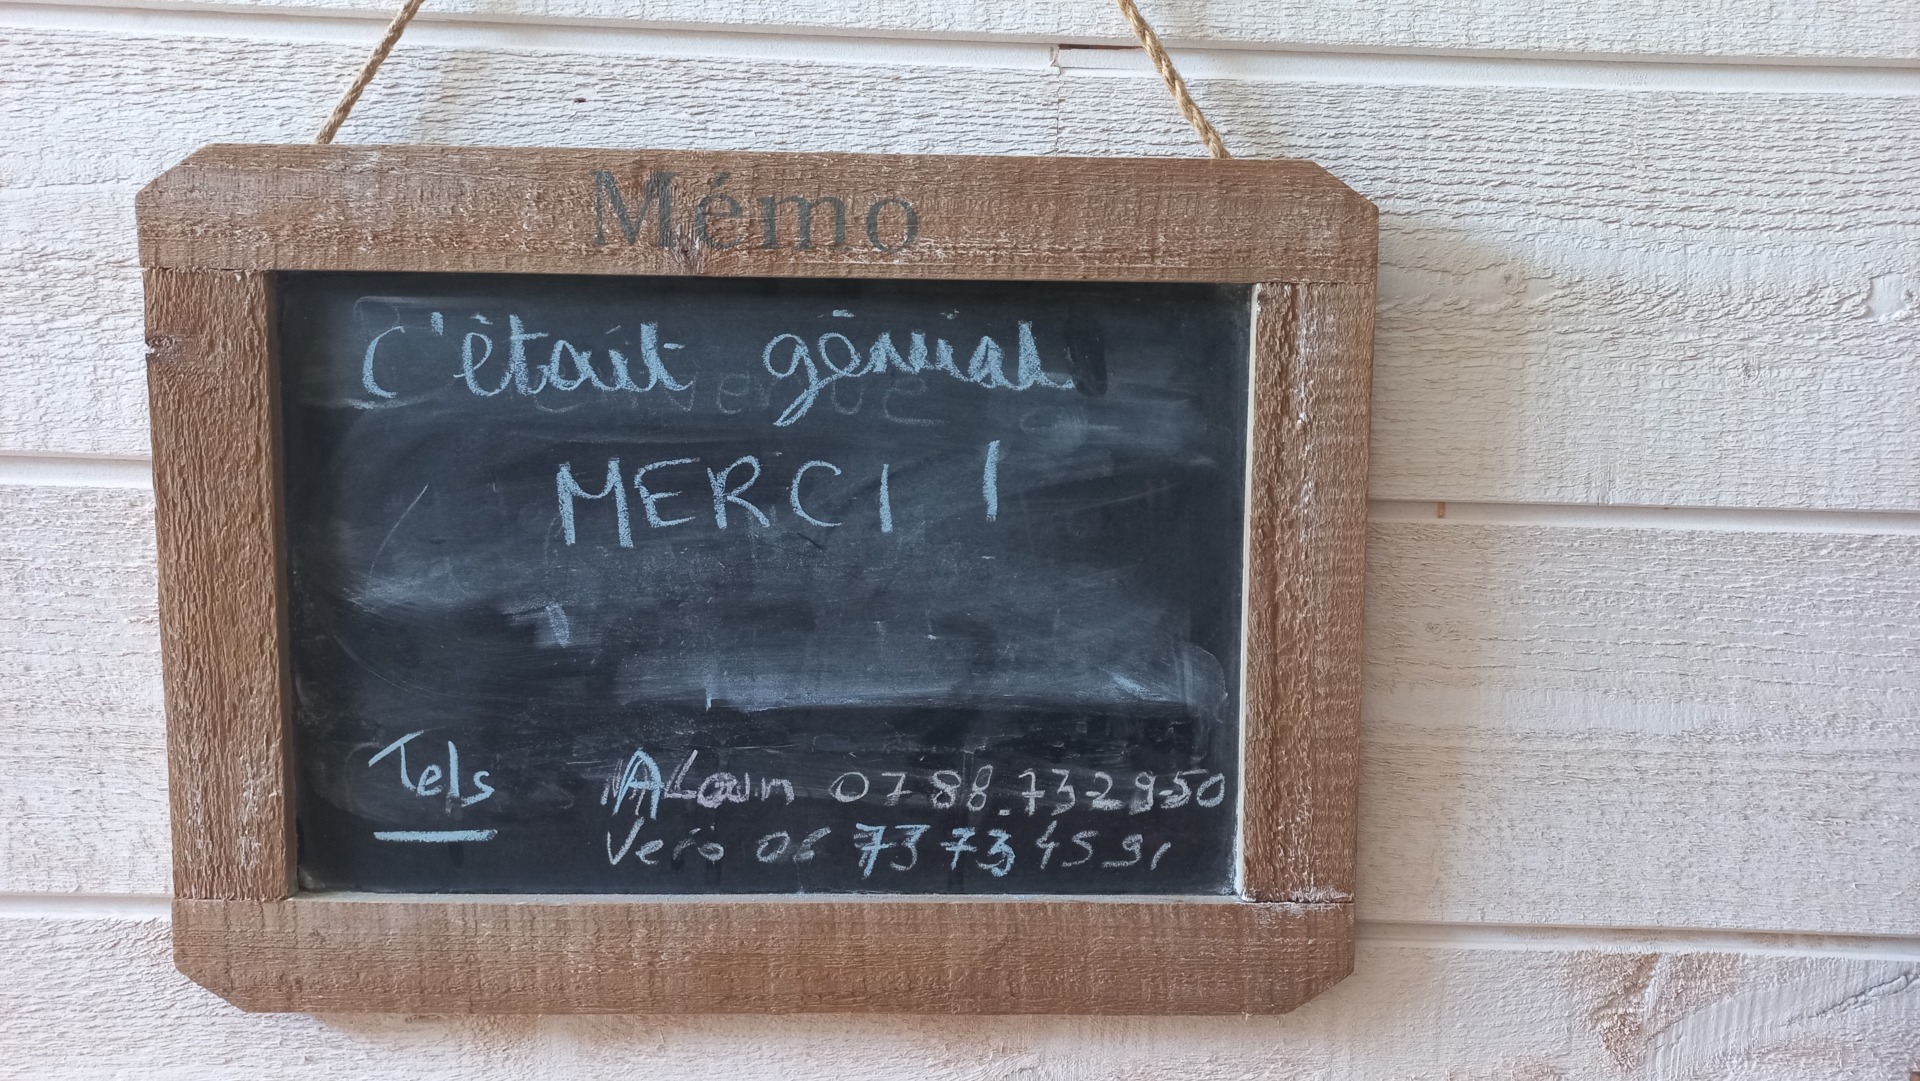 Mémo
C'était génial
MERCI !
Tels
Alain 07 88.73 29 50
Véro 06 73 73 45 91